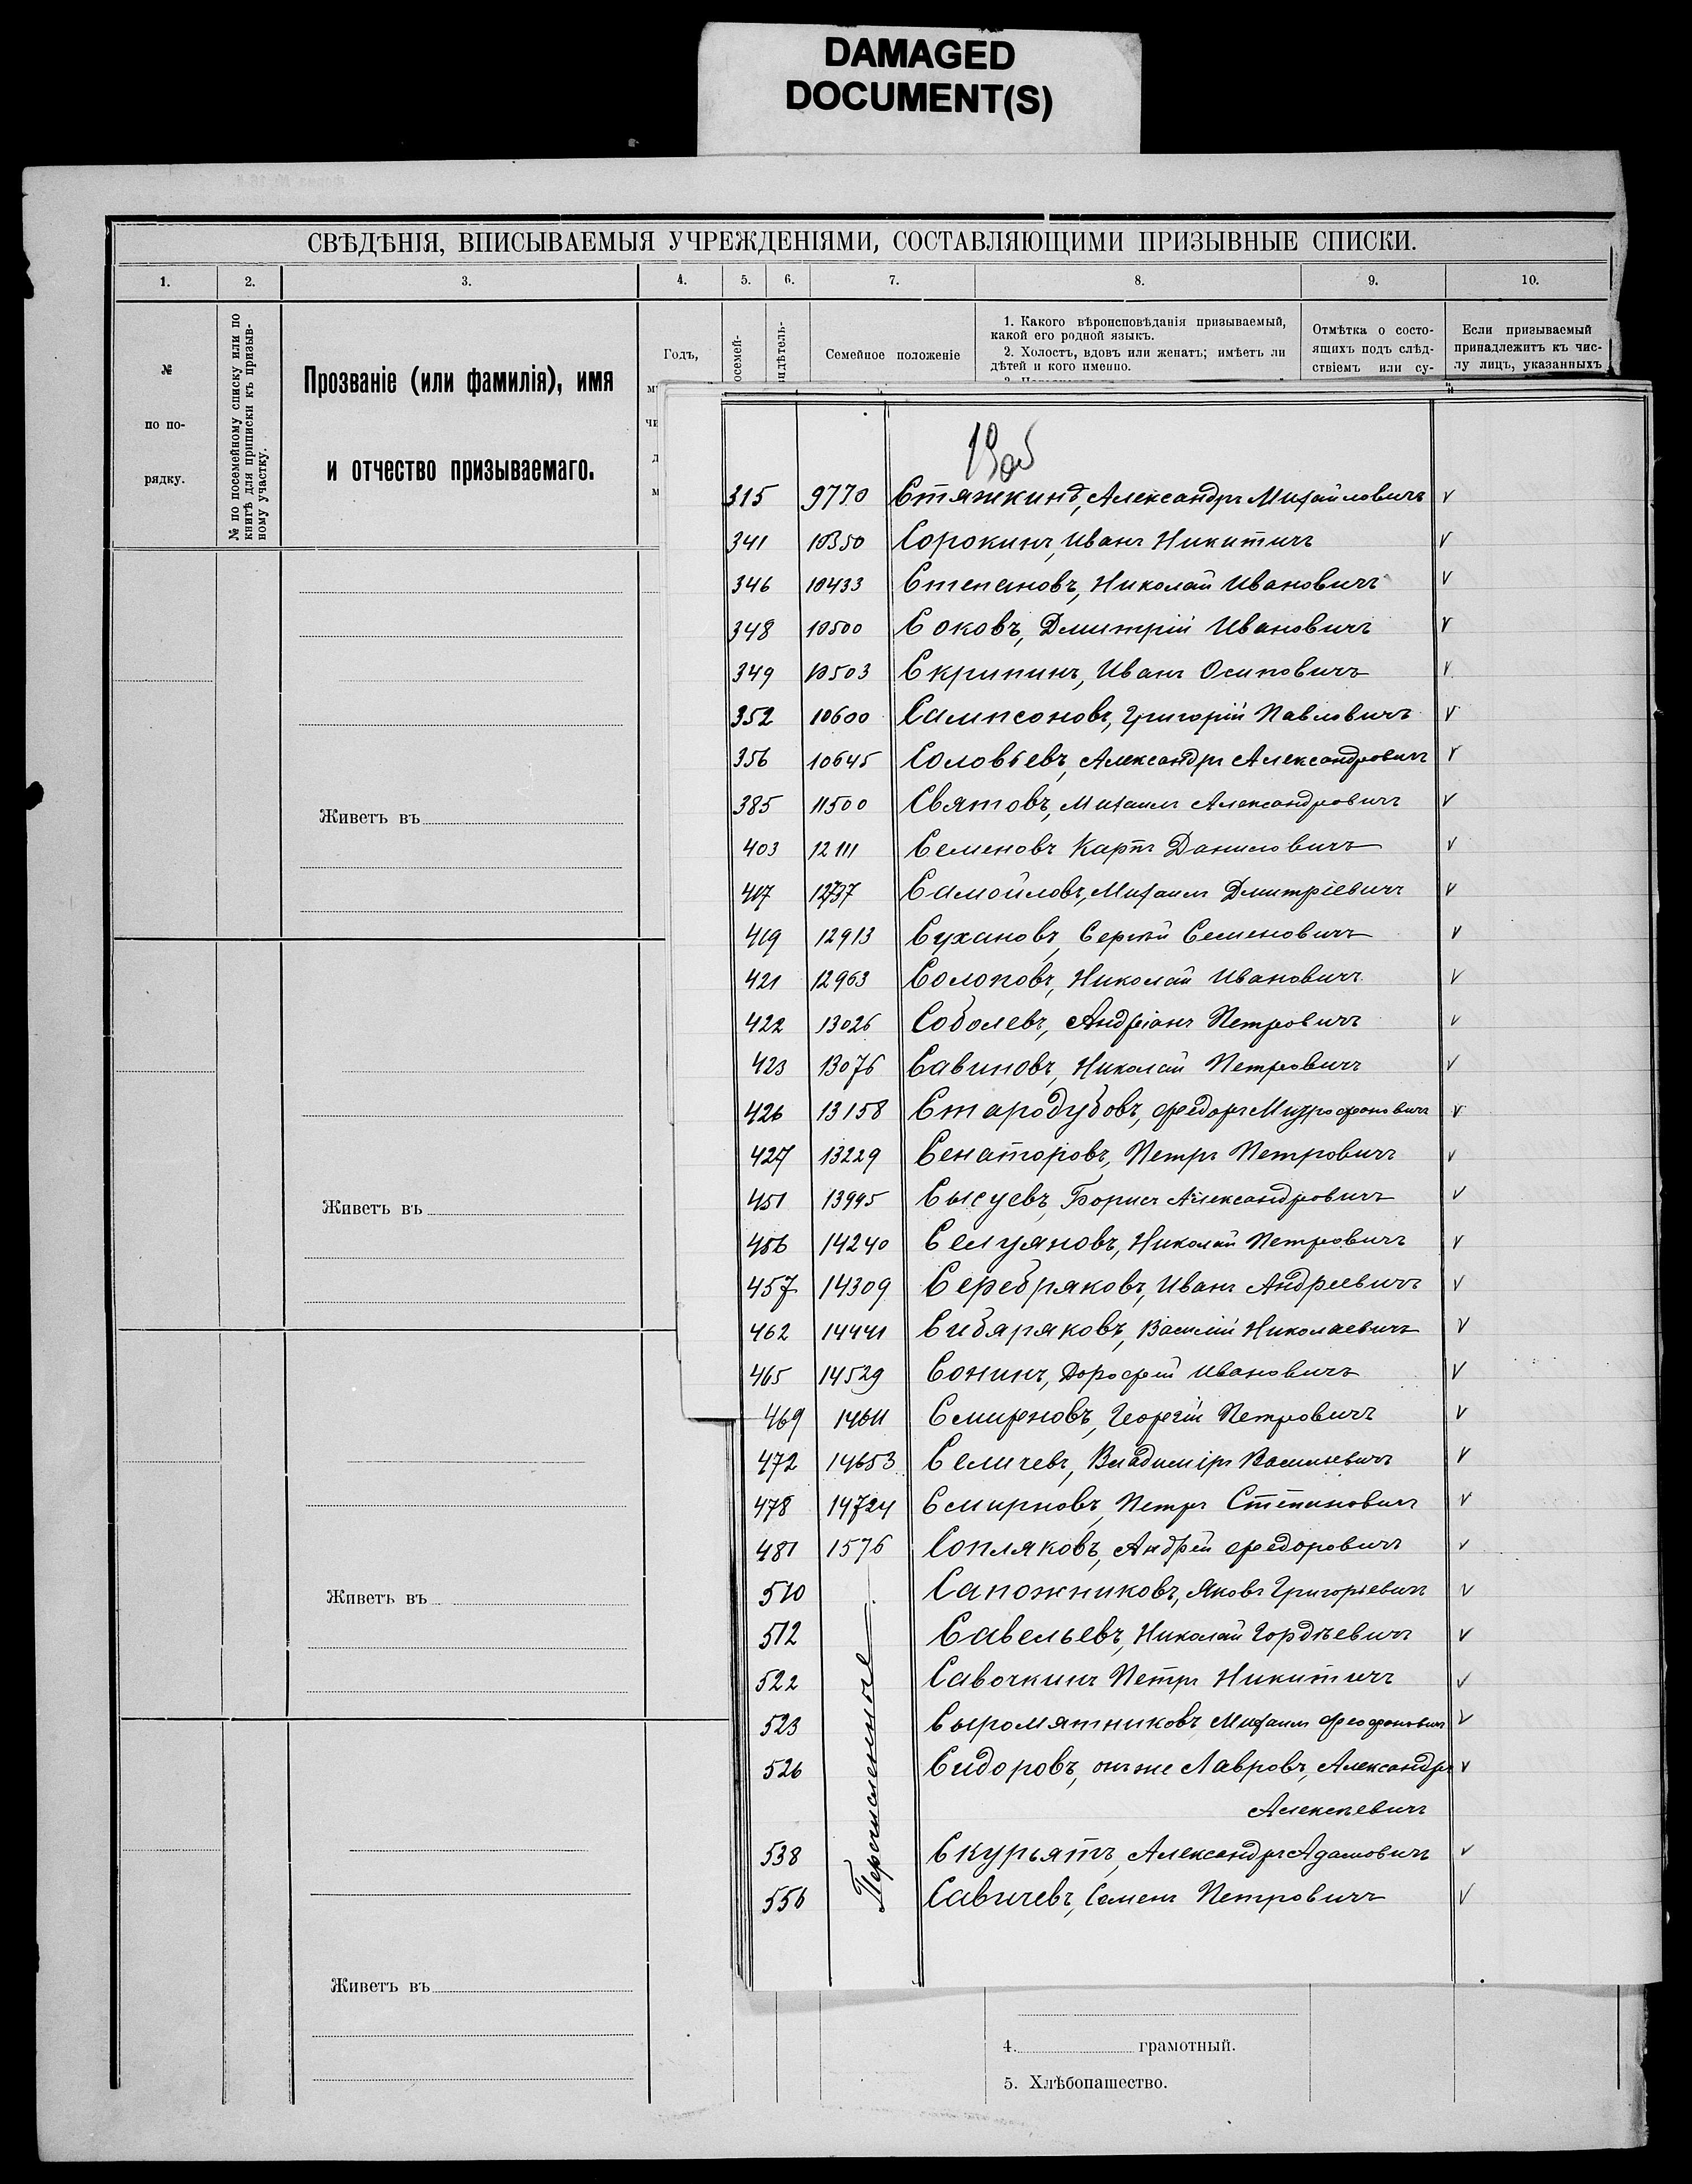 DAMAGED
DOCUMENT(S)
СВѢДѢНІЯ, ВПИСЫВАЕМЫЯ УЧРЕЖДЕНІЯМИ, СОСТАВЛЯЮЩИМИ ПРИЗЫВНЫЕ СПИСКИ.
1. 2. 3. 4. 5. 6. 7. 8. 9. 10.
№
по по-
рядку.
№ по посемейному списку или по
книгѣ для приписки къ призыв-
ному участку.
Прозваніе (или фамилія), имя
и отчество призываемаго.
Годъ,
Семейное положеніе
1. Какого вѣроисповѣданія призываемый,
какой его родной языкъ.
2. Холостъ, вдовъ или женатъ; имѣетъ ли
дѣтей и кого именно.
Отмѣтка о состо-
ящихъ подъ слѣд-
ствіемъ или су-
Если призываемый
принадлежитъ къ чис-
лу лицъ, указанныхъ
315 9770 Стяжкинъ, Александръ Михайловичъ v
341 10350 Сорокинъ, Иванъ Никитичъ v
346 10433 Степановъ, Николай Ивановичъ v
348 10500 Соковъ, Дмитрій Ивановичъ v
349 10503 Скрипинъ, Иванъ Осиповичъ v
352 10600 Сампсоновъ, Григорій Павловичъ v
356 10645 Соловьевъ, Александръ Александровичъ v
385 11500 Святовъ, Михаилъ Александровичъ v
403 12111 Семеновъ Карпъ Даниловичъ v
417 12737 Самойловъ, Михаилъ Дмитріевичъ v
419 12913 Сухановъ, Сергѣй Семеновичъ v
421 12963 Солоповъ, Николай Ивановичъ v
422 13026 Соболевъ, Андріанъ Петровичъ v
423 13076 Савиновъ, Николай Петровичъ v
426 13158 Стародубовъ, Федоръ Митрофановичъ v
427 13229 Сенаторовъ, Петръ Петровичъ v
451 13995 Сысуевъ, Борисъ Александровичъ v
456 14240 Селуяновъ, Николай Петровичъ v
457 14309 Серебряковъ, Иванъ Андреевичъ v
462 14441 Сибиряковъ, Василій Николаевичъ v
465 14529 Сонинъ, Дорофей Ивановичъ v
469 14611 Смирновъ, Георгій Петровичъ v
472 14653 Селичевъ, Владиміръ Васильевичъ v
478 14724 Смирновъ, Петръ Степановичъ v
481 1576 Сопляковъ, Андрей Федоровичъ v
510 Сапожниковъ, Яковъ Григорьевичъ v
512 Савельевъ, Николай Гордѣевичъ v
522 Савочкинъ Петръ Никитичъ v
523 Сыромятниковъ, Михаилъ Феофановичъ v
526 Сидоровъ, онъ же Лавровъ, Александръ v
Алексѣевичъ
538 Скурьятъ, Александръ Адамовичъ v
556 Савичевъ, Семенъ Петровичъ v
Перечисленные
Живетъ въ
Живетъ въ
Живетъ въ
Живетъ въ
4. грамотный.
5. Хлѣбопашество.